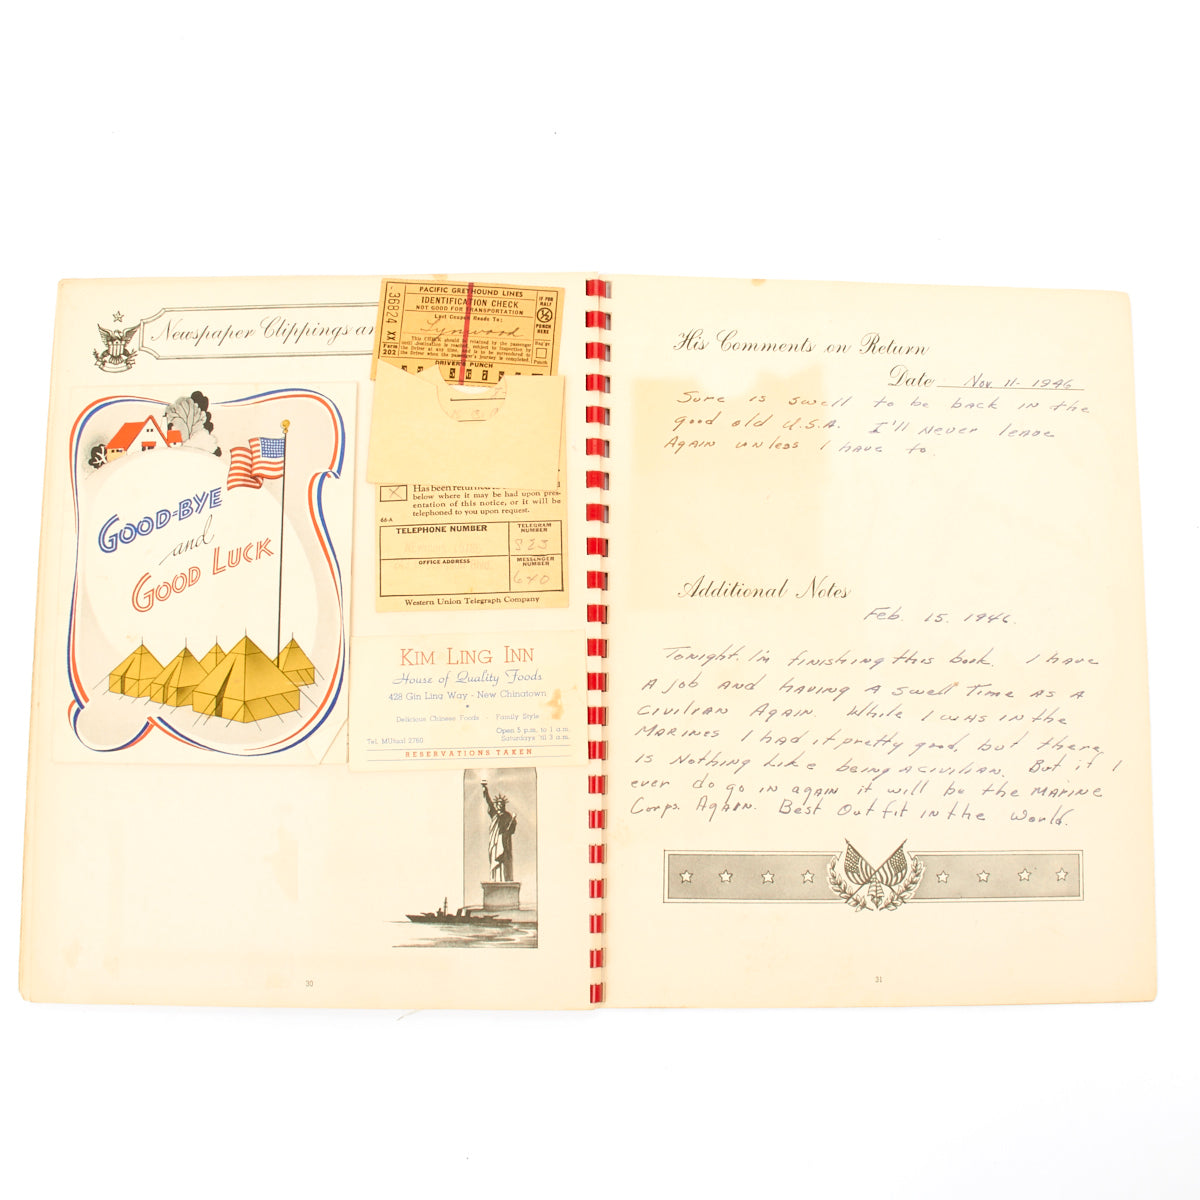 Newspaper Clippings an
GOOD-BYE
and
GOOD LUCK
36824
XX
Form
202
PACIFIC GREYHOUND LINES
IDENTIFICATION CHECK
NOT GOOD FOR TRANSPORTATION
Last Coupon Reads To:
Lynwood
This CHECK should be retained by the passenger
until destination is reached, subject to inspection by
the Driver at any time, and is to be surrendered to
the Driver when the passenger's journey is completed.
DRIVER'S PUNCH
IF FOR
HALF
½
PUNCH
HERE
Has been returned to
below where it may be had upon pres-
entation of this notice, or it will be
telephoned to you upon request.
66-A
TELEPHONE NUMBER
TELEGRAM
NUMBER
S23
OFFICE ADDRESS
MESSENGER
NUMBER
640
Western Union Telegraph Company
KIM LING INN
House of Quality Foods
428 Gin Ling Way - New Chinatown
Delicious Chinese Foods - Family Style
Open 5 p.m. to 1 a.m.
Tel. MUtual 2760
Saturdays 'til 3 a.m.
RESERVATIONS TAKEN
30
His Comments on Return
Date Nov 11- 1946
Sure is swell to be back in the
good old U.S.A. I'll never leave
Again unless I have to.
Additional Notes
Feb. 15. 1946.
Tonight. I'm finishing this book. I have
A job AND having A swell Time AS A
civilian Again. While I was in the
MARINES I had it pretty good, but there
is Nothing Like being a civilian. But if I
ever do go in again it will be the MARINE
Corps. Again. Best Outfit in the World.
31